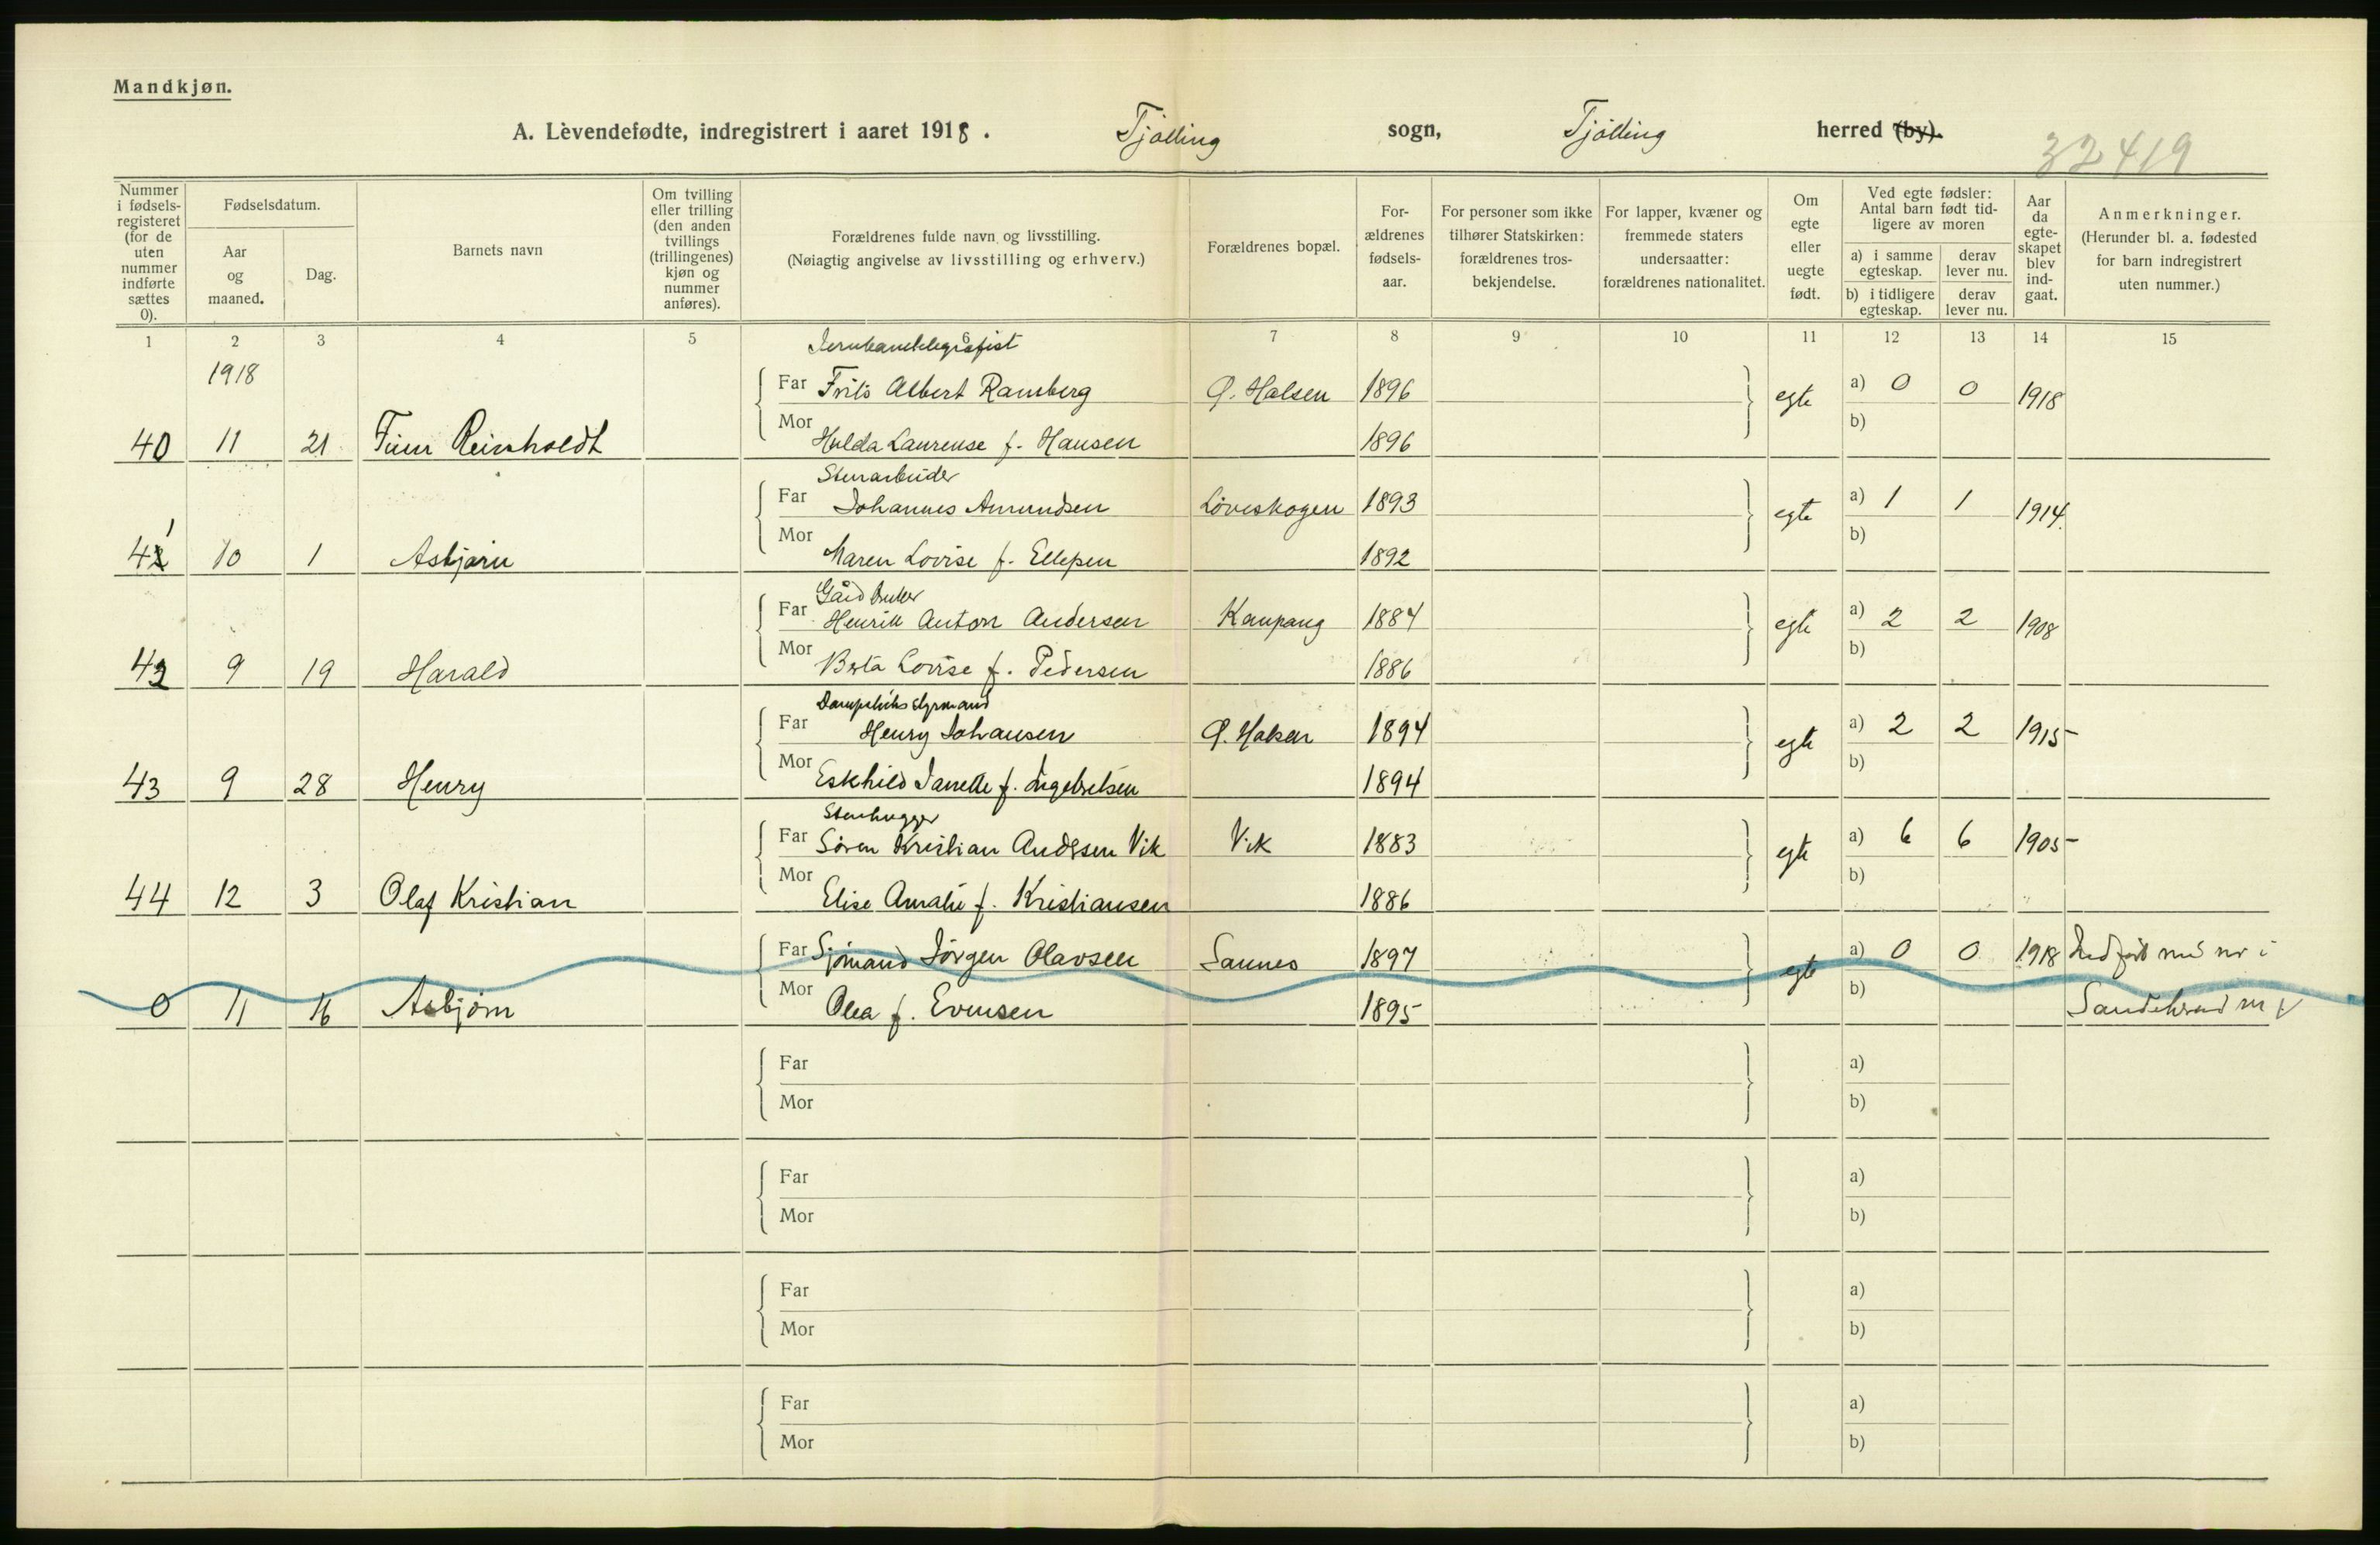 Mandkjøn.
A. Levendefødte, indregistrert i aaret 1918. Tjølling sogn, Tjølling herred (by).
32419
Nummer i fødsels-registeret (for de uten nummer indførte sættes 0).
Fødselsdatum.
Aar og maaned.
Dag.
Barnets navn
Om tvilling eller trilling (den anden tvillings (trillingenes) kjøn og nummer anføres).
Forældrenes fulde navn og livsstilling.
(Nøiagtig angivelse av livsstilling og erhverv.)
Forældrenes bopæl.
For-ældrenes fødsels-aar.
For personer som ikke tilhører Statskirken: forældrenes tros-bekjendelse.
For lapper, kvæner og fremmede staters undersaatter: forældrenes nationalitet.
Om egte eller uegte født.
Ved egte fødsler: Antal barn født tid-ligere av moren
a) i samme egteskap.
derav lever nu.
b) i tidligere egteskap.
derav lever nu.
Aar da egte-skapet blev ind-gaat.
Anmerkninger.
(Herunder bl. a. fødested for barn indregistrert uten nummer.)
1 2 3 4 5 6 7 8 9 10 11 12 13 14 15
1918
Jernbanetelegrafist
Far Frits Albert Ramberg Ø. Halsen 1896 egte a) 0 0 1918
Mor Hulda Laurense f. Hansen 1896 b)
40 11 21 Finn Reinholdt
Stenarbeider
Far Johannes Amundsen Løveskogen 1893 egte a) 1 1 1914
Mor Maren Lovise f. Ellefsen 1892 b)
41 10 1 Asbjørn
Gårdbruker
Far Henrik Anton Andersen Kaupang 1884 egte a) 2 2 1908
Mor Berta Lovise f. Pedersen 1886 b)
42 9 19 Harald
Dampskibs styrmand
Far Henry Johansen Ø. Halsen 1894 egte a) 2 2 1915
Mor Eskhild Janette f. Ingebretsen 1894 b)
43 9 28 Henry
Stenhugger
Far Søren Kristian Andersen Vik Vik 1883 egte a) 6 6 1905
Mor Elise Amalie f. Kristiansen 1886 b)
44 12 3 Olaf Kristian
Far Sjømand Jørgen Olavsen Sannes 1897 egte a) 0 0 1918 Indført med nr i
Mor Olea f. Evensen 1895 b) Sandeherred
0 11 16 Asbjørn
Far a)
Mor b)
Far a)
Mor b)
Far a)
Mor b)
Far a)
Mor b)